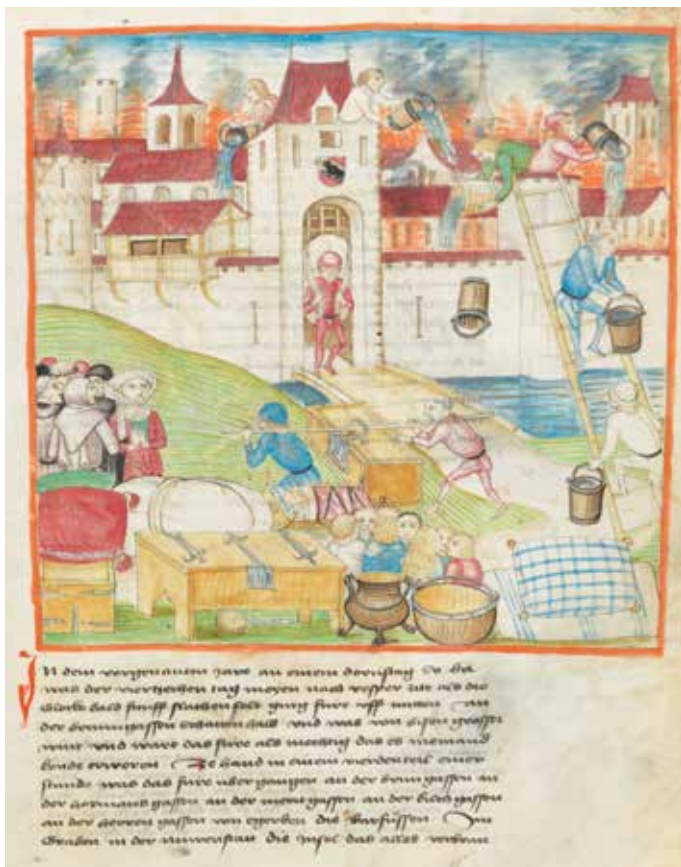 In dem vorgenanten jare an einem dornstag So da
was der viertzehen tag meyen nach vesper zit als die
glock bald fünff slachen solt ging füre uff mitten an
der brunngassen schattenhalb und was von bisen grosser
wint und wart das füre als mechtig das es niemand
konde erweren Ze hand in einem vierdenteil einer
stunde was das füre ubergangen an der brungassen an
der hormans gassen an der merit gassen an der kilch gassen
an der herren gassen von egerden die Barfüssen Im
Graben in der nuwenstatt die Insel das alles verbran